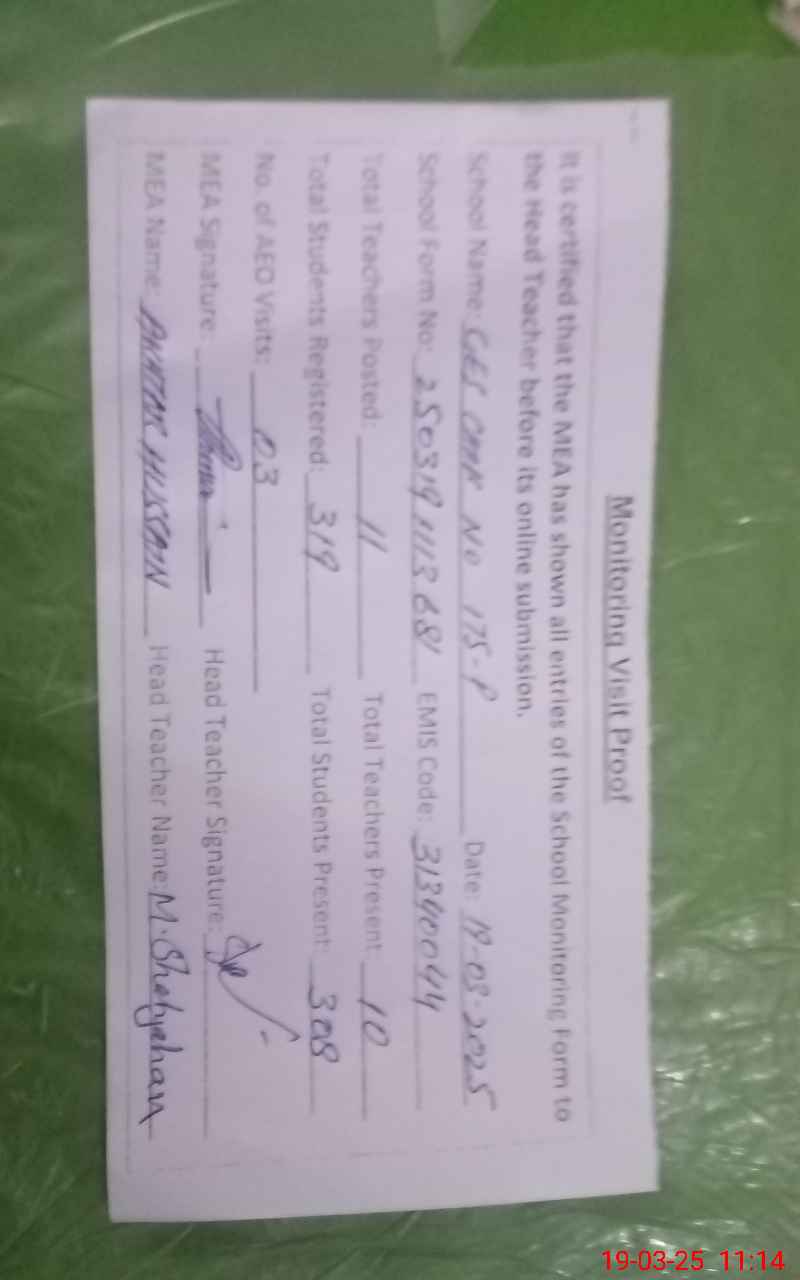 Monitoring Visit Proof
It is certified that the MEA has shown all entries of the School Monitoring Form to
the Head Teacher before its online submission.
School Name: GES CHAK NO 175-P Date: 19-03-2025
School Form No: 2503191113681 EMIS Code: 31340044
Total Teachers Posted: 11 Total Teachers Present: 10
Total Students Registered: 319 Total Students Present: 308
No. of AEO Visits: 03
MEA Signature: Head Teacher Signature:
MEA Name: HUSSAIN Head Teacher Name: M. Shahjehan
19-03-25 11:14